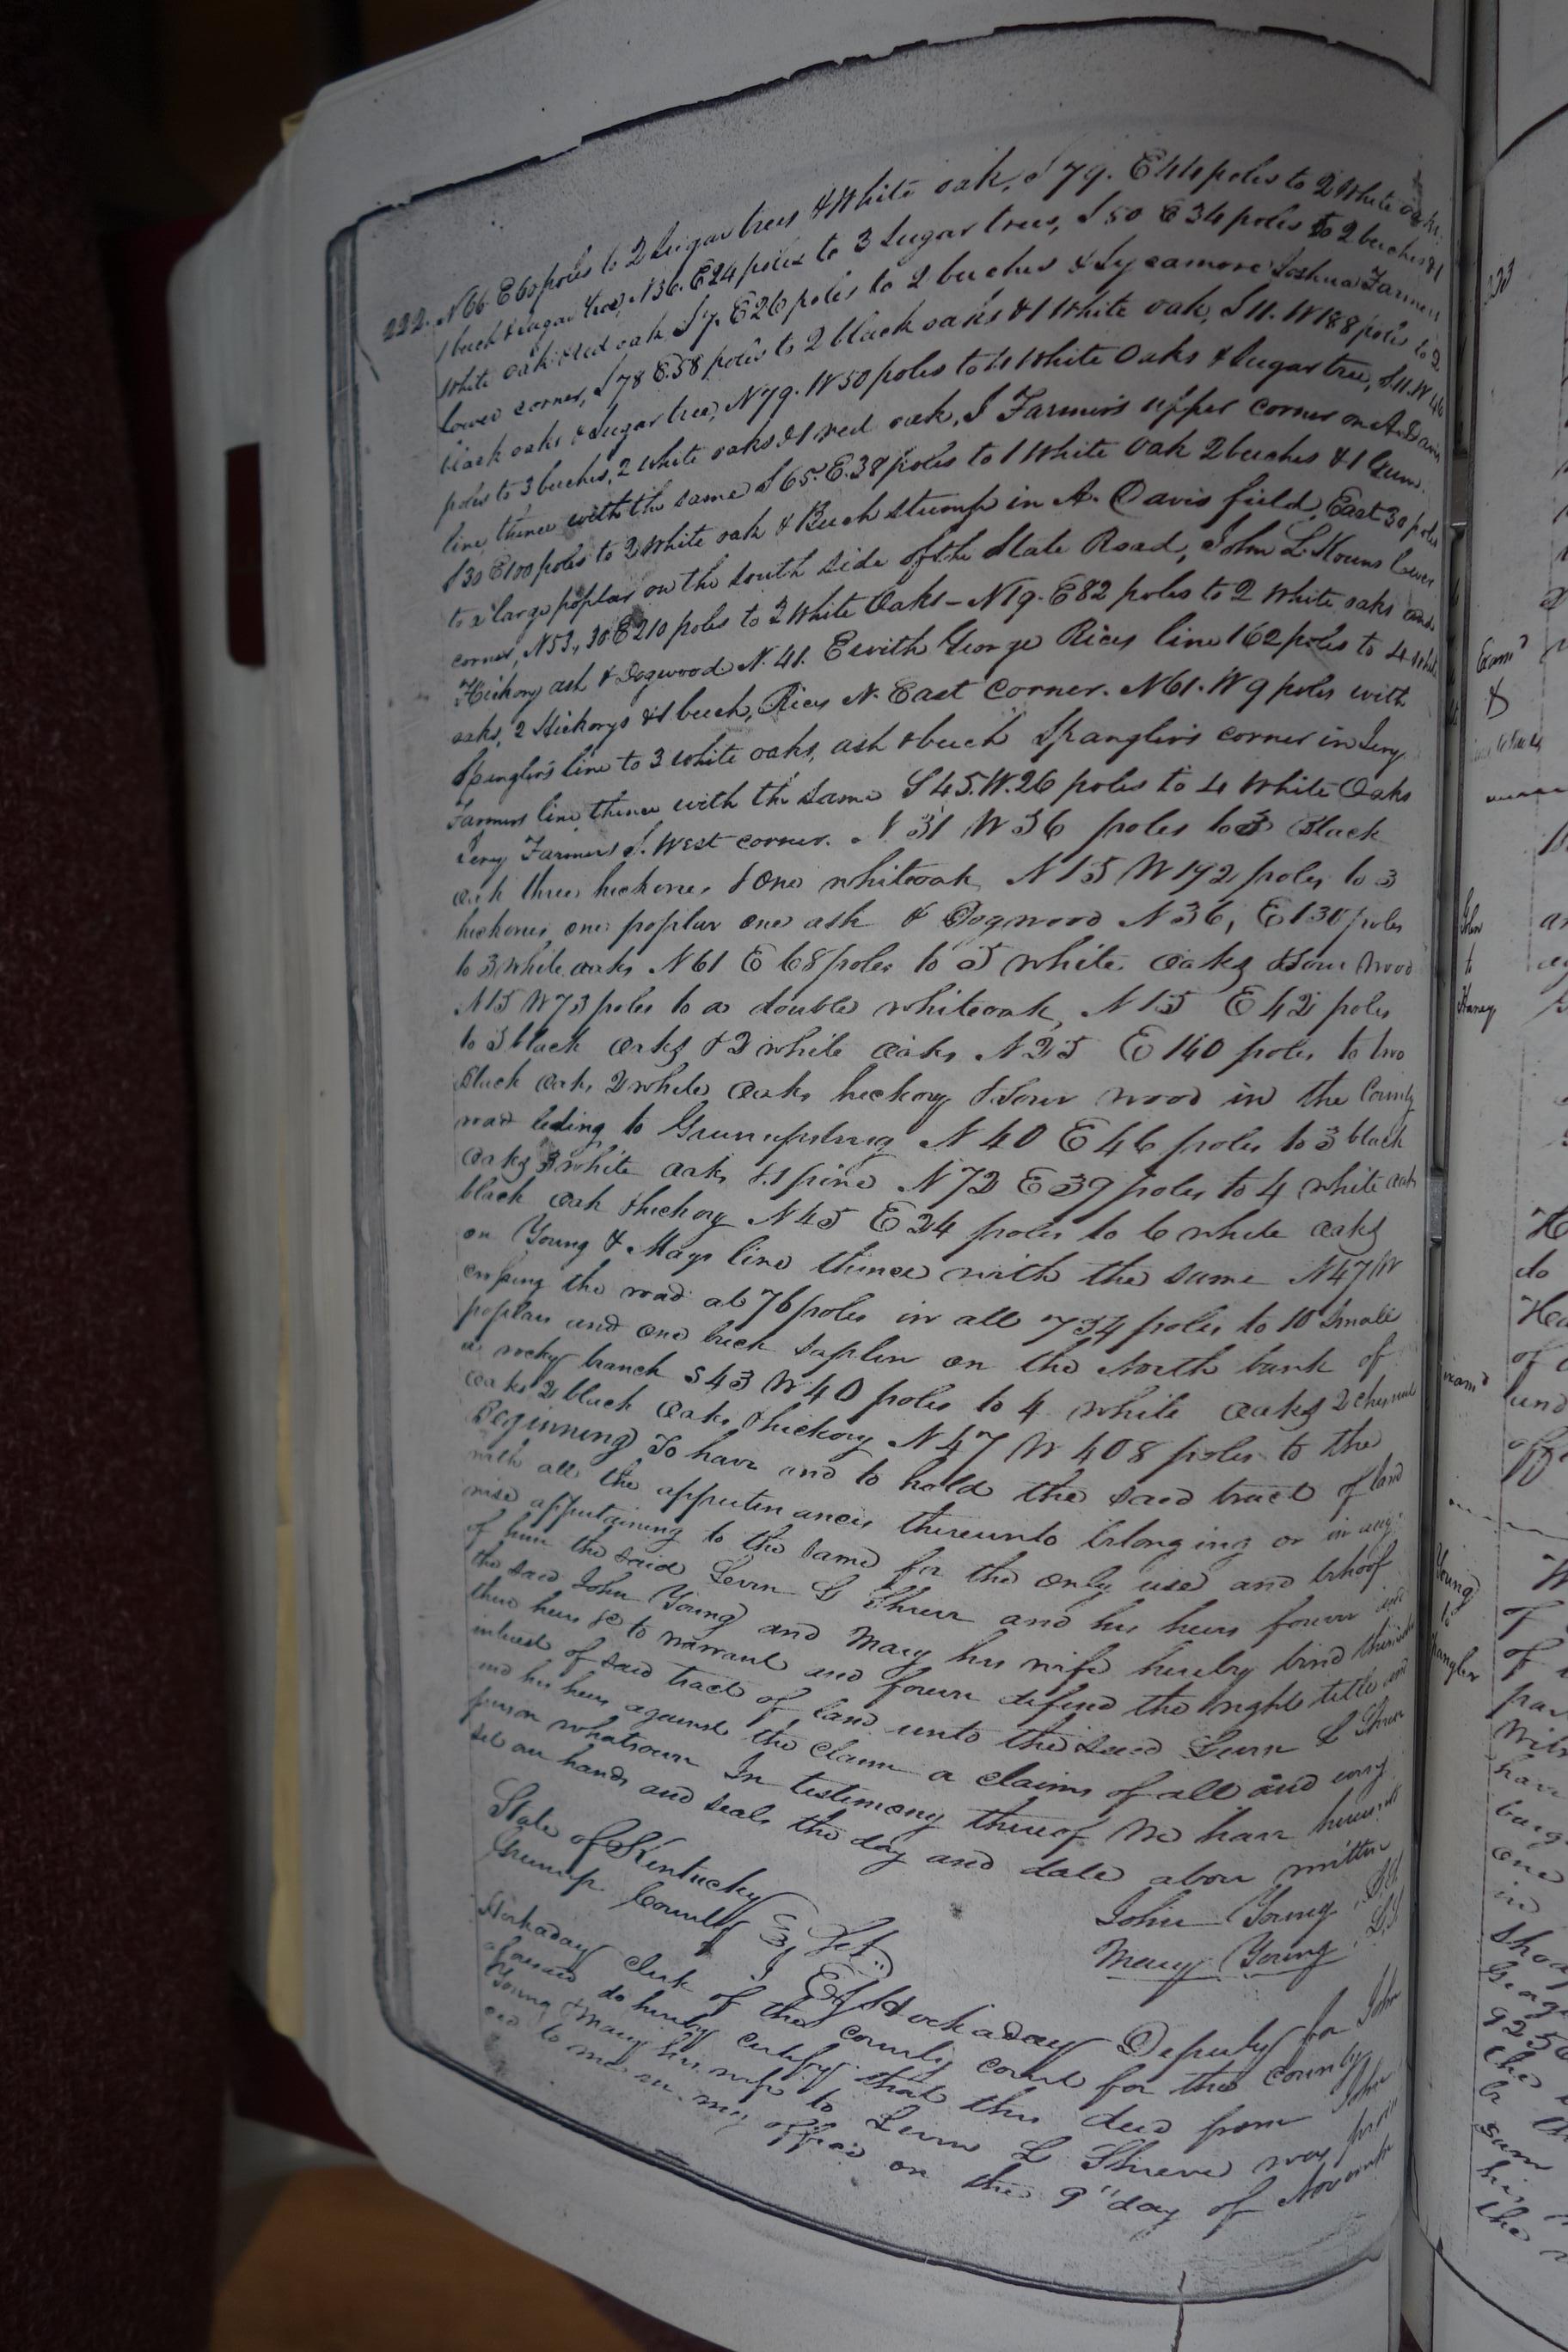 222. N 66. E 60 poles to 2 Sugar trees & White oak, S 79. E 44 poles to 2 White oaks,
1 buch & Sugar tree, N 36. E 24 poles to 3 Sugar trees, S 50 E 34 poles to 2 buches & 1
White oak & Red oak S 7. E 26 poles to 2 buches & Sycamore Joshua Farmers
lower corner, S 78 E. 58 poles to 2 black oaks & 1 White oak, S 11. W 188 poles to 2
black oaks & Sugar tree, N 79. W 50 poles to 4 White Oaks & Sugar tree, S 11. W 46
poles to 3 buches, 2 White oaks & 1 red oak, J Farmers upper corner on A. Davis
line, thence with the same S 65. E. 38 poles to 1 White Oak 2 buches & 1 Gum.
S 30 E 100 poles to 2 White oak & Buch stump in A. Davis field, East 30 poles
to a large poplar on the south side of the State Road, John L. Kouns lower
corner, N 53, 30 E 210 poles to 2 White Oaks - N 19. E 82 poles to 2 White oaks and
Hickory ash & Dogwood N. 41. E with George Rices line 162 poles to 4 White
oaks, 2 Hickorys & 1 buch, Rices N. East Corner. N 61. W 9 poles with
Spanglers line to 3 white oaks, ash & buch Spanglers corner in Levy
Farmers line, thence with the same S 45. W. 26 poles to 4 White Oaks
Levy Farmers S. West corner. N 31 W 36 poles to 3 Black
oak three hickories & One whiteoak N 15 W 192 poles to 3
hickories one poplar one ash & Dogwood N 36, E 130 poles
to 3 white oaks N 61 E 68 poles to 5 white oaks & Sour wood
N 15 W 73 poles to a double whiteoak, N 15 E 42 poles
to 3 black oaks & 2 white oaks N 25 E 140 poles to two
black oaks 2 white oaks hickory & Sour wood in the County
road leding to Greenupsburg N 40 E 46 poles to 3 black
oaks 3 white oaks & 1 pine N 72 E 39 poles to 4 white oaks
black oak & hickory N 45 E 24 poles to 6 white oaks
on Young & Mays line thence with the same N 47 W
crossing the road at 76 poles in all 734 poles to 10 Small
poplars and one buch saplin on the North bank of
a rocky branch S 43 W 40 poles to 4 white oaks 2 chesnut
oaks 2 black oaks & hickory N 47 W 408 poles to the
Beginning To have and to hold the said tract of land
with all the appurtenances thereunto belonging or in any
wise appertaining to the same for the only use and behoof
of him the said Levin L Shreve and his heirs forever and
the said John Young and Mary his wife hereby bind themselves
their heirs &c to warrant and forever defend the right title and
interest of said tract of land unto the said Levin L Shreve
and his heirs against the claim or claims of all and every
person whatsoever In testimony thereof We have hereunto
set our hands and seals the day and date above written
John Young
Mary Young
State of Kentucky
Greenup County Sct.
I E Hockaday Deputy for John
Hockaday Clerk of the county court for the county
aforesaid do hereby certify that this deed from John
Young & Mary his wife to Levin L Shreve was
to me in my office on the 9" day of November
223
Exam'd
&
John
to
Haney
Exam'd
Young
to
Spangler